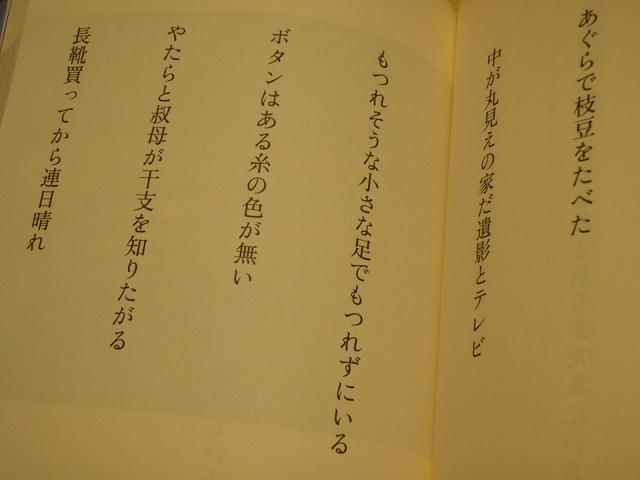 あぐらで枝豆をたべた
中が丸見えの家だ遺影とテレビ
もつれそうな小さな足でもつれずにいる
ボタンはある糸の色が無い
やたらと叔母が干支を知りたがる
長靴買ってから連日晴れ